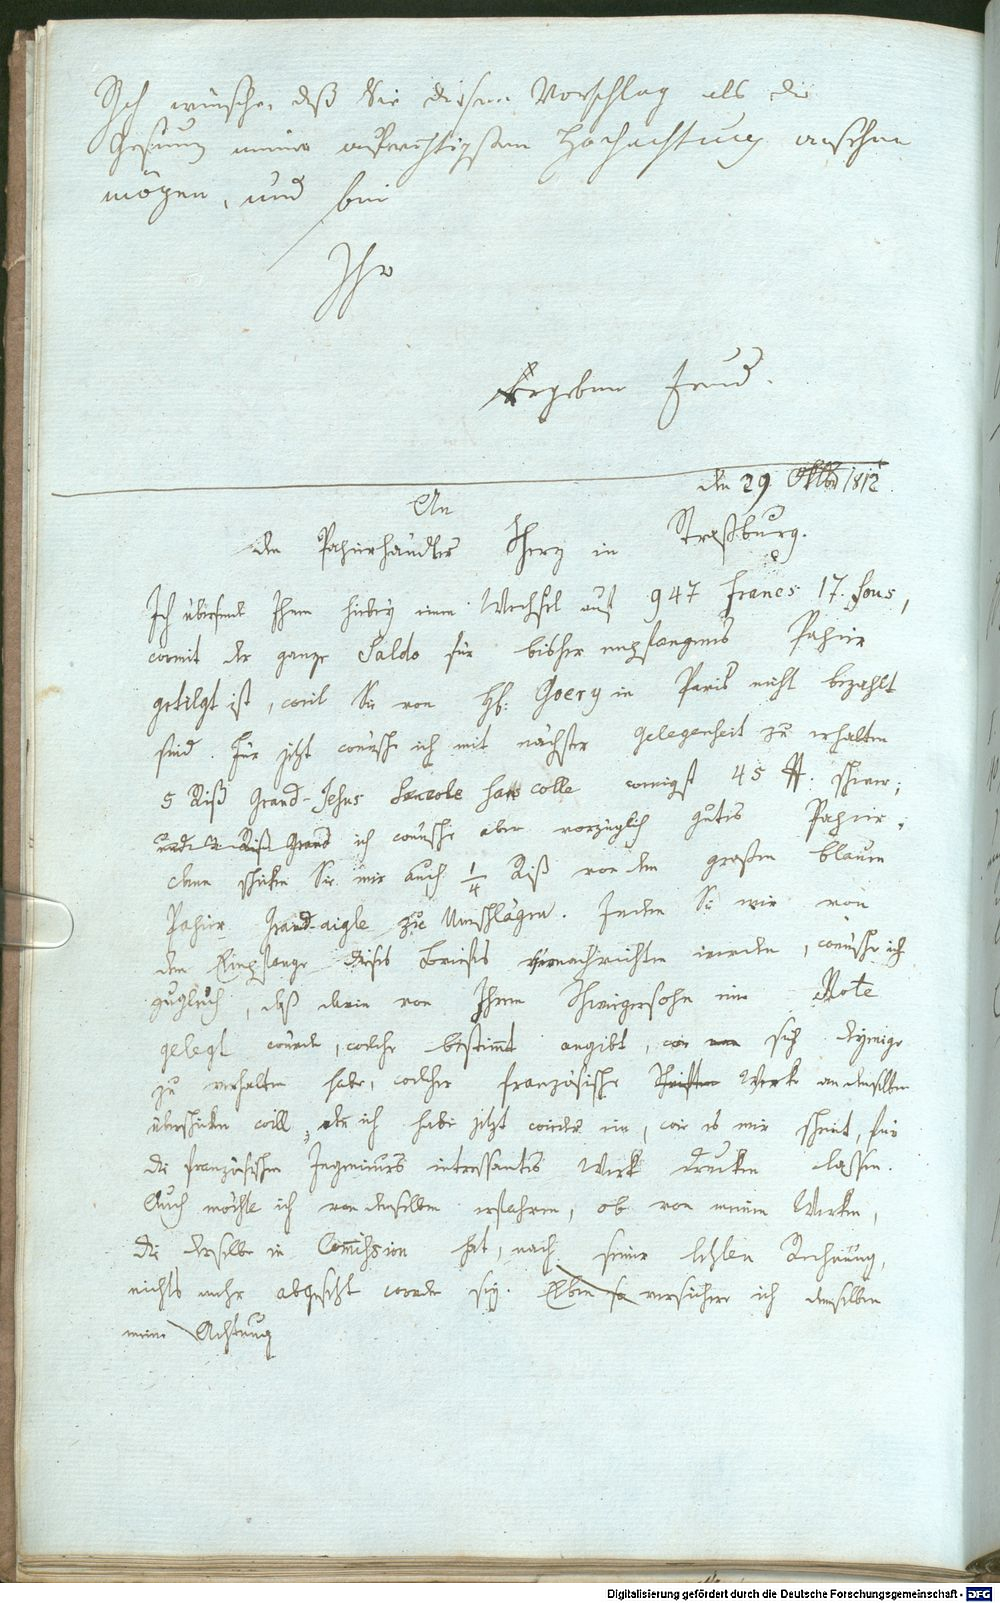 Ich wünsche, daß Sie diesen Vorschlag als die
meiner aufrichtigsten Hochachtung ansehen
mögen, und bin
Ihr
Ergebner Freund.
den 29 Oktbr 1812
An
den Papierhändler Scherz in Straßburg.
Ich übersende Ihnen hiebey einen Wechsel auf 947 Francs 17. Sous,
womit der ganze Saldo für bisher empfangenes Papier
getilgt ist, weil Sie von H: Goery in Paris nicht bezahlt
sind. Für jetzt wünsche ich mit nächster Gelegenheit zu erhalten
5 Riß Grand-Jesus sans colle wenigst 45 ℔. schwer;
und 2 Riß Grand ich wünsche aber vorzüglich gutes Papier;
dann schicken Sie mir auch 1/4 Riß von dem großen blauen
Papier Grand-aigle zu Umschlägen. Indem Sie mir von
dem Empfange dieses Briefes benachrichten werden, wünsche ich
zugleich, daß darin von Ihrem Schwiegersohn eine Note
gelegt werde, welche bestimmt angibt, wie man sich derjenige
zu verhalten habe, welcher französische Schriften Werke an denselben
überschicken will, denn ich habe jetzt wieder ein, wie es mir scheint, für
die französischen Ingenieurs interessantes Werk drucken lassen.
Auch möchte ich von demselben erfahren, ob von meinen Werken,
die derselbe in Commission hat, nach seiner letzten Rechnung,
nichts mehr abgesetzt worden sey. Eben so versichere ich demselben
meine Achtung